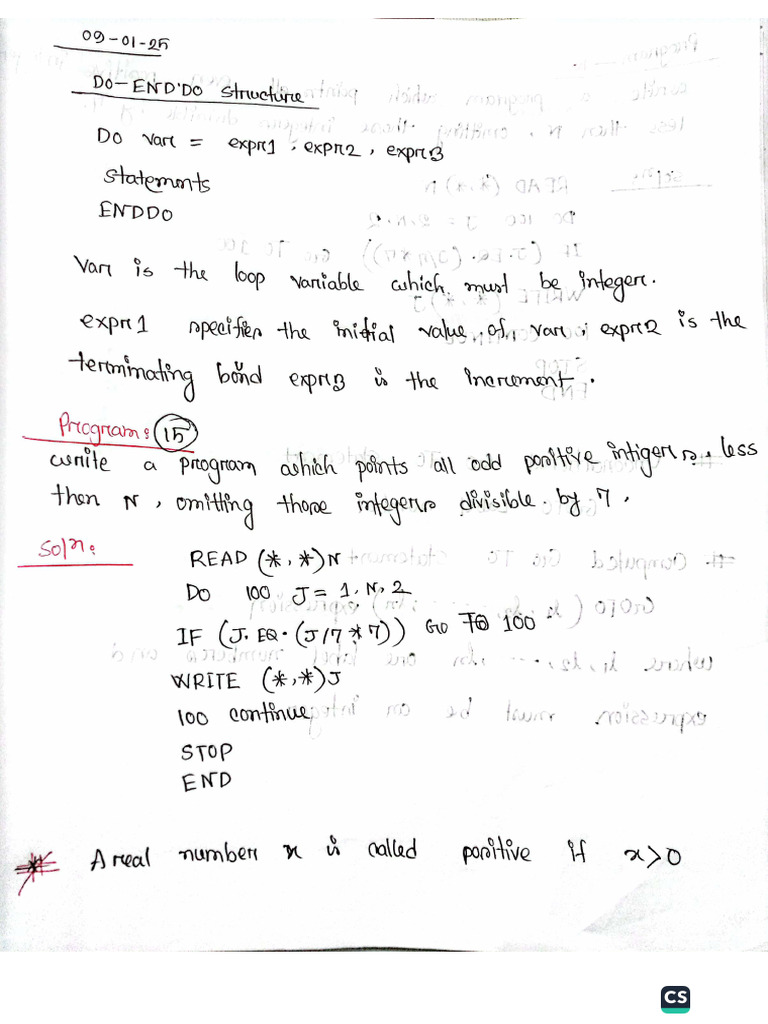 09-01-25
DO-END'DO structure
DO var = expr1, expr2, expr3
statements
ENDDO
Var is the loop variable which must be integer.
expr1 specifies the initial value of var, expr2 is the
terminating bond expr3 is the increment.
Program: 15
write a program which points all odd positive intigers, less
then N, omitting those integers divisible by 7.
Soln:
READ (*,*)N
DO 100 J = 1, N, 2
IF (J.EQ.(J/7*7)) GO TO 100
WRITE (*,*)J
100 continue
STOP
END
* A real number x is called positive if x>0
CS